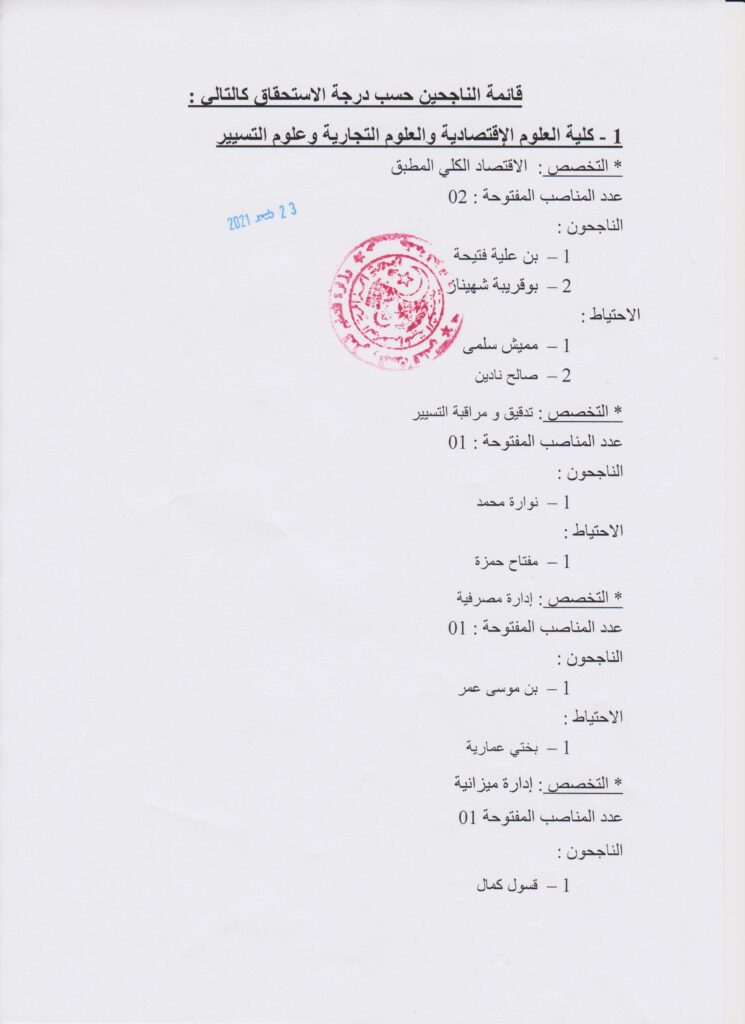 قائمة الناجحين حسب درجة الاستحقاق كالتالي :
1 - كلية العلوم الإقتصادية والعلوم التجارية وعلوم التسيير
* التخصص : الاقتصاد الكلي المطبق
عدد المناصب المفتوحة : 02
23 ديسمبر 2021
الناجحون :
1 – بن علية فتيحة
2 – بوقريبة شهيناز
الاحتياط :
1 – مميش سلمى
2 – صالح نادين
* التخصص : تدقيق و مراقبة التسيير
عدد المناصب المفتوحة : 01
الناجحون :
1 – نوارة محمد
الاحتياط :
1 – مفتاح حمزة
* التخصص : إدارة مصرفية
عدد المناصب المفتوحة : 01
الناجحون :
1 – بن موسى عمر
الاحتياط :
1 – بختي عمارية
* التخصص : إدارة ميزانية
عدد المناصب المفتوحة 01
الناجحون :
1 – قسول كمال